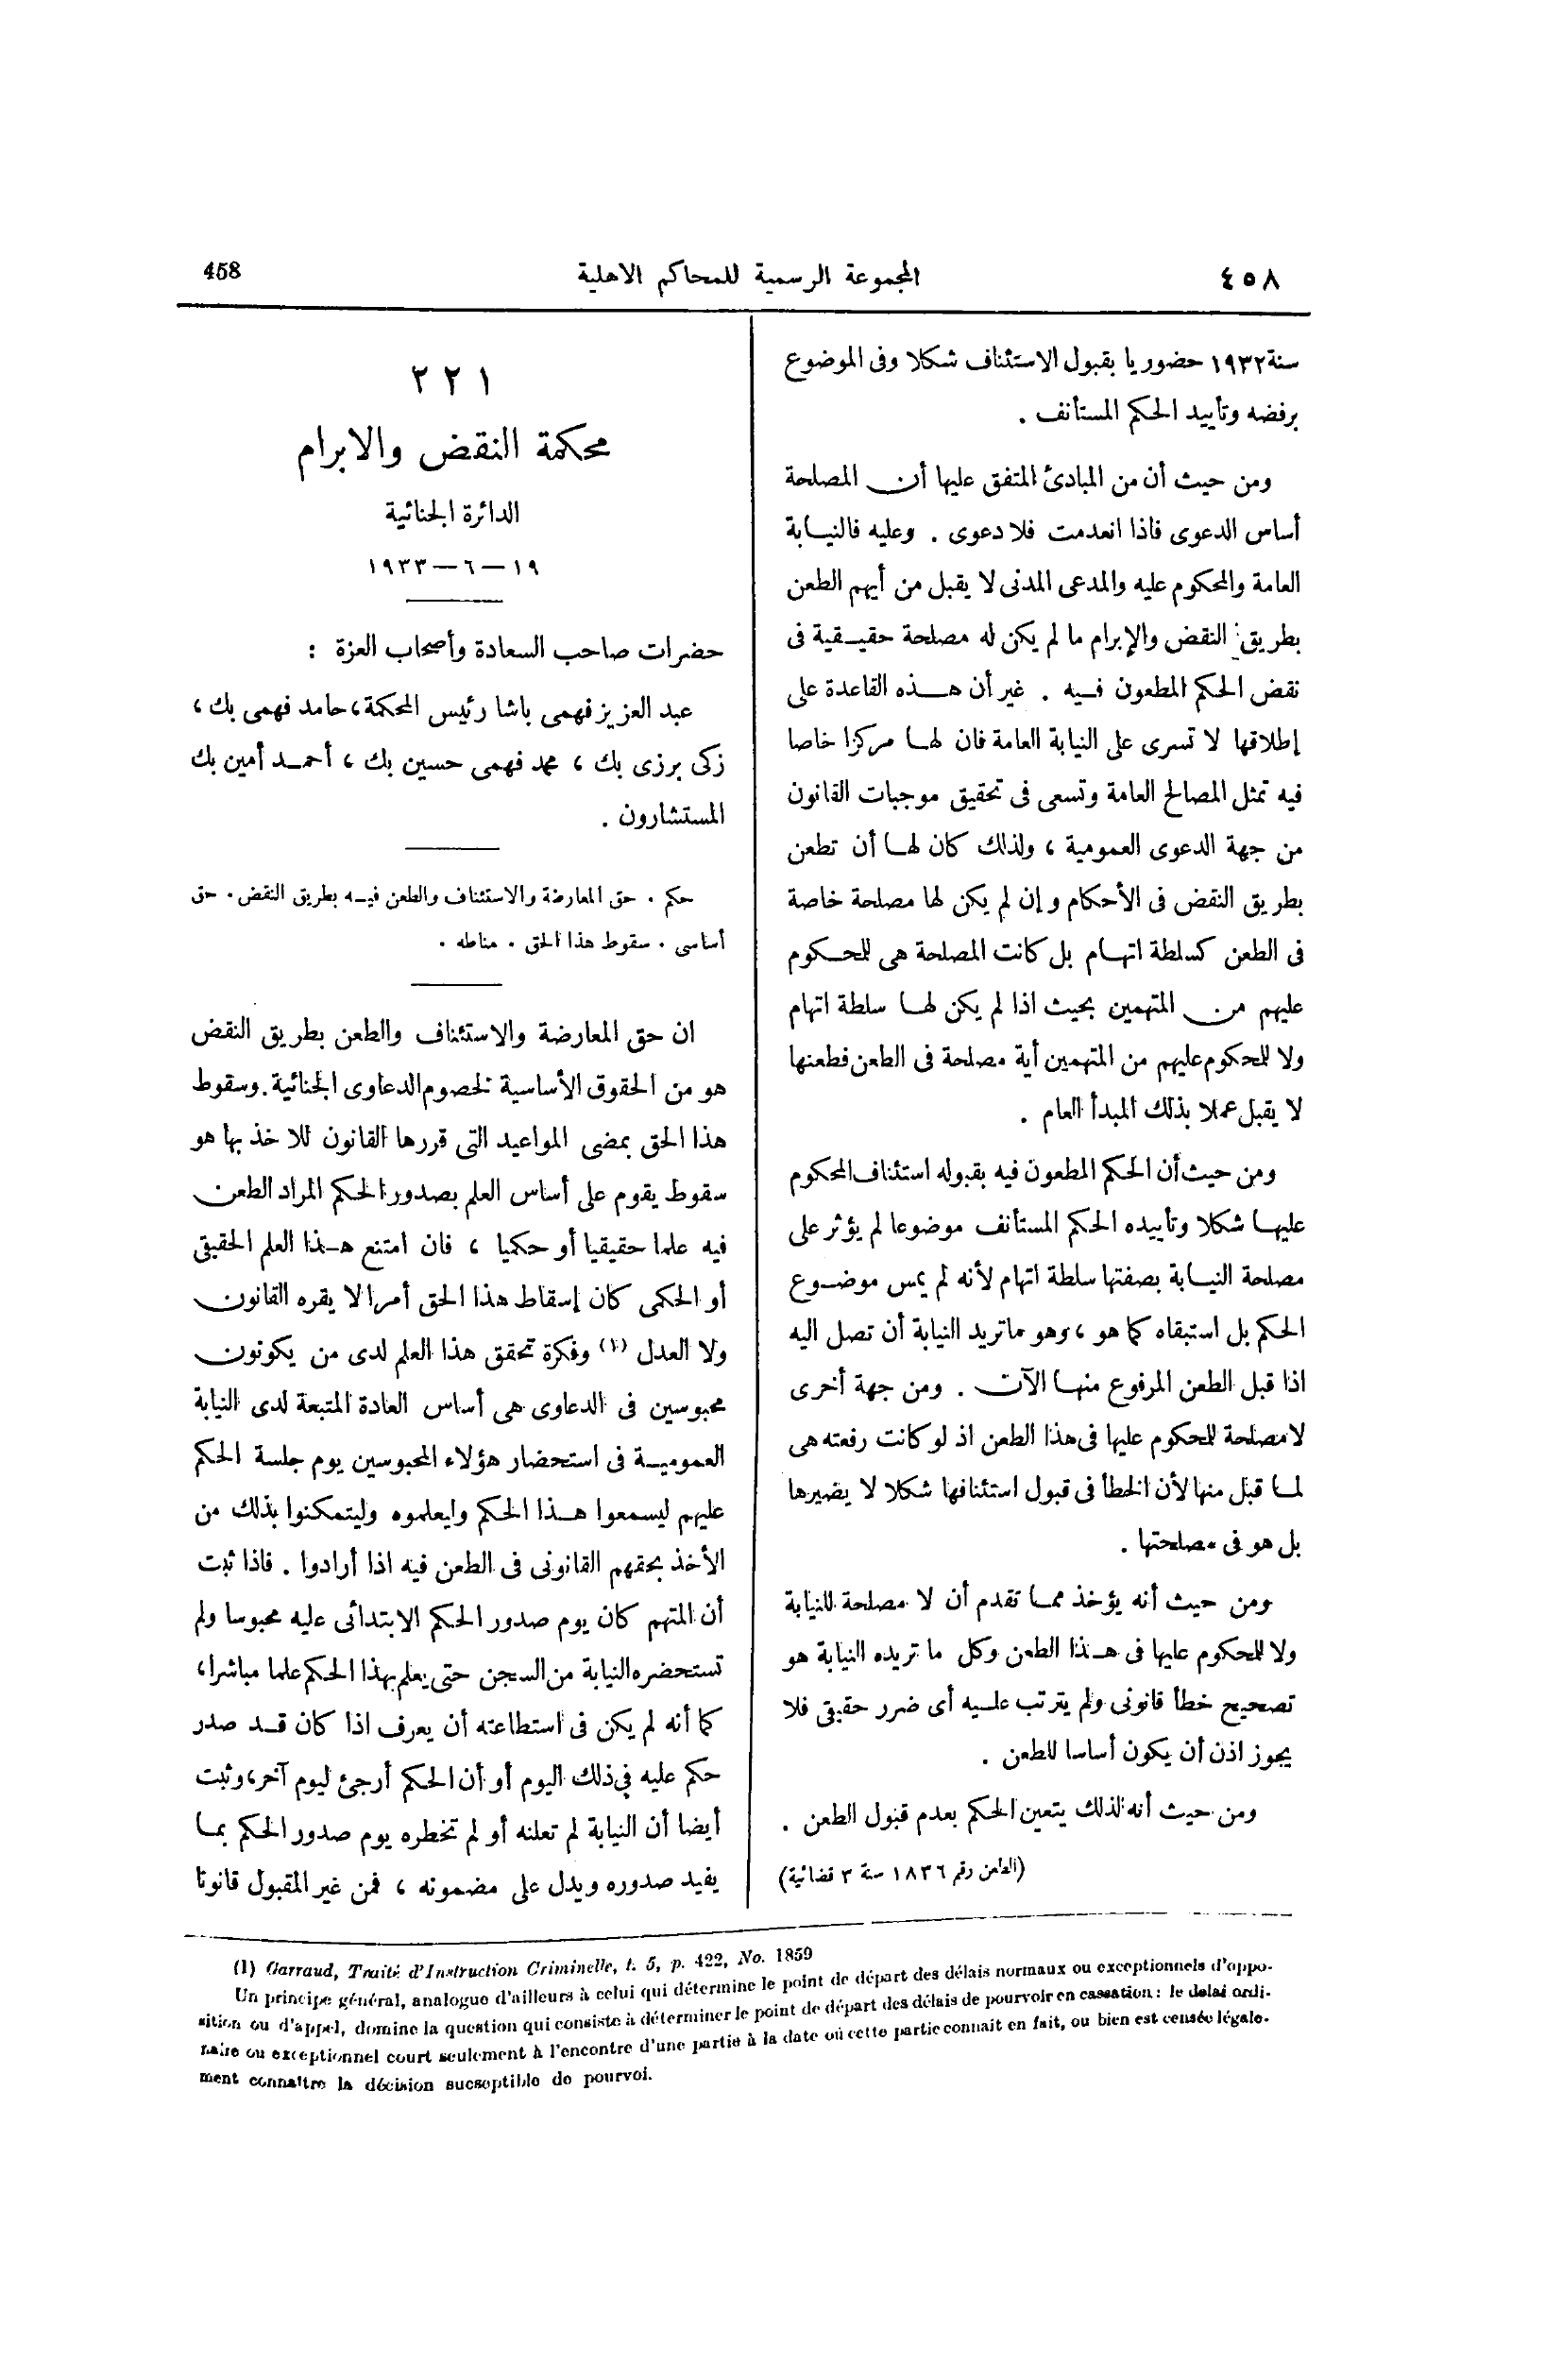 ٤٥٨ المجموعة الرسمية للمحاكم الاهلية 458
سنة ١٩٣٢ حضوريا بقبول الاستئناف شكلا وفى الموضوع
برفضه وتأييد الحكم المستأنف .
ومن حيث أن من المبادئ المتفق عليها أن المصلحة
أساس الدعوى فاذا انعدمت فلا دعوى . وعليه فالنيابة
العامة والمحكوم عليه والمدعى المدنى لا يقبل من أيهم الطعن
بطريق النقض والإبرام ما لم يكن له مصلحة حقيقية فى
نقض الحكم المطعون فيه . غير أن هذه القاعدة على
إطلاقها لا تسرى على النيابة العامة فان لها مركزا خاصا
فيه تمثل المصالح العامة وتسعى فى تحقيق موجبات القانون
من جهة الدعوى العمومية ، ولذلك كان لها أن تطعن
بطريق النقض فى الأحكام وإن لم يكن لها مصلحة خاصة
فى الطعن كسلطة اتهام بل كانت المصلحة هى للمحكوم
عليهم من المتهمين بحيث اذا لم يكن لها سلطة اتهام
ولا للمحكوم عليهم من المتهمين أية مصلحة فى الطعن فطعنها
لا يقبل عملا بذلك المبدأ العام .
ومن حيث أن الحكم المطعون فيه بقبوله استئناف المحكوم
عليها شكلا وتأييده الحكم المستأنف موضوعا لم يؤثر على
مصلحة النيابة بصفتها سلطة اتهام لأنه لم يمس موضوع
الحكم بل استبقاه كما هو ، وهو ماتريد النيابة أن تصل اليه
اذا قبل الطعن المرفوع منها الآن . ومن جهة أخرى
لامصلحة للمحكوم عليها فى هذا الطعن اذ لو كانت رفعته هى
لما قبل منها لأن الخطأ فى قبول استئنافها شكلا لا يضيرها
بل هو فى مصلحتها .
ومن حيث أنه يؤخذ مما تقدم أن لا مصلحة للنيابة
ولا للمحكوم عليها فى هذا الطعن وكل ما تريده النيابة هو
تصحيح خطأ قانونى ولم يترتب عليه أى ضرر حقيقى فلا
يجوز اذن أن يكون أساسا للطعن .
ومن حيث أنه لذلك يتعين الحكم بعدم قبول الطعن .
(الطعن رقم ١٨٣٦ سنة ٣ قضائية)
٢٢١
محكمة النقض والابرام
الدائرة الجنائية
١٩ — ٦ — ١٩٣٣
حضرات صاحب السعادة وأصحاب العزة :
عبد العزيز فهمى باشا رئيس المحكمة ، حامد فهمى بك ،
زكى برزى بك ، محمد فهمى حسين بك ، أحمد أمين بك
المستشارون .
حكم . حق المعارضة والاستئناف والطعن فيه بطريق النقض . حق
أساسى . سقوط هذا الحق . مناطه .
ان حق المعارضة والاستئناف والطعن بطريق النقض
هو من الحقوق الأساسية لخصوم الدعاوى الجنائية . وسقوط
هذا الحق بمضى المواعيد التى قررها القانون للاخذ بها هو
سقوط يقوم على أساس العلم بصدور الحكم المراد الطعن
فيه علما حقيقيا أو حكميا ، فان امتنع هذا العلم الحقيقى
أو الحكمى كان إسقاط هذا الحق أمرا لا يقره القانون
ولا العدل (١) وفكرة تحقق هذا العلم لدى من يكونون
محبوسين فى الدعاوى هى أساس العادة المتبعة لدى النيابة
العمومية فى استحضار هؤلاء المحبوسين يوم جلسة الحكم
عليهم ليسمعوا هذا الحكم وليعلموه وليتمكنوا بذلك من
الأخذ بحقهم القانونى فى الطعن فيه اذا أرادوا . فاذا ثبت
أن المتهم كان يوم صدور الحكم الابتدائى عليه محبوسا ولم
تستحضره النيابة من السجن حتى يعلم بهذا الحكم علما مباشرا،
كما أنه لم يكن فى استطاعته أن يعرف اذا كان قد صدر
حكم عليه فى ذلك اليوم أو أن الحكم أرجئ ليوم آخر، وثبت
أيضا أن النيابة لم تعلنه أو لم تخطره يوم صدور الحكم بما
يفيد صدوره ويدل على مضمونه ، فمن غير المقبول قانونا
(1) Garraud, Traité d'Instruction Criminelle, t. 5, p. 422, No. 1859
Un principe général, analogue d'ailleurs à celui qui détermine le point de départ des délais normaux ou exceptionnels d'oppo-
sition ou d'appel, domine la question qui consiste à déterminer le point de départ des délais de pourvoir en cassation : le delai ordi-
naire ou exceptionnel court seulement à l'encontre d'une partie à la date où cette partie connait en fait, ou bien est censée légale-
ment connaître la décision sucseptible de pourvoi.